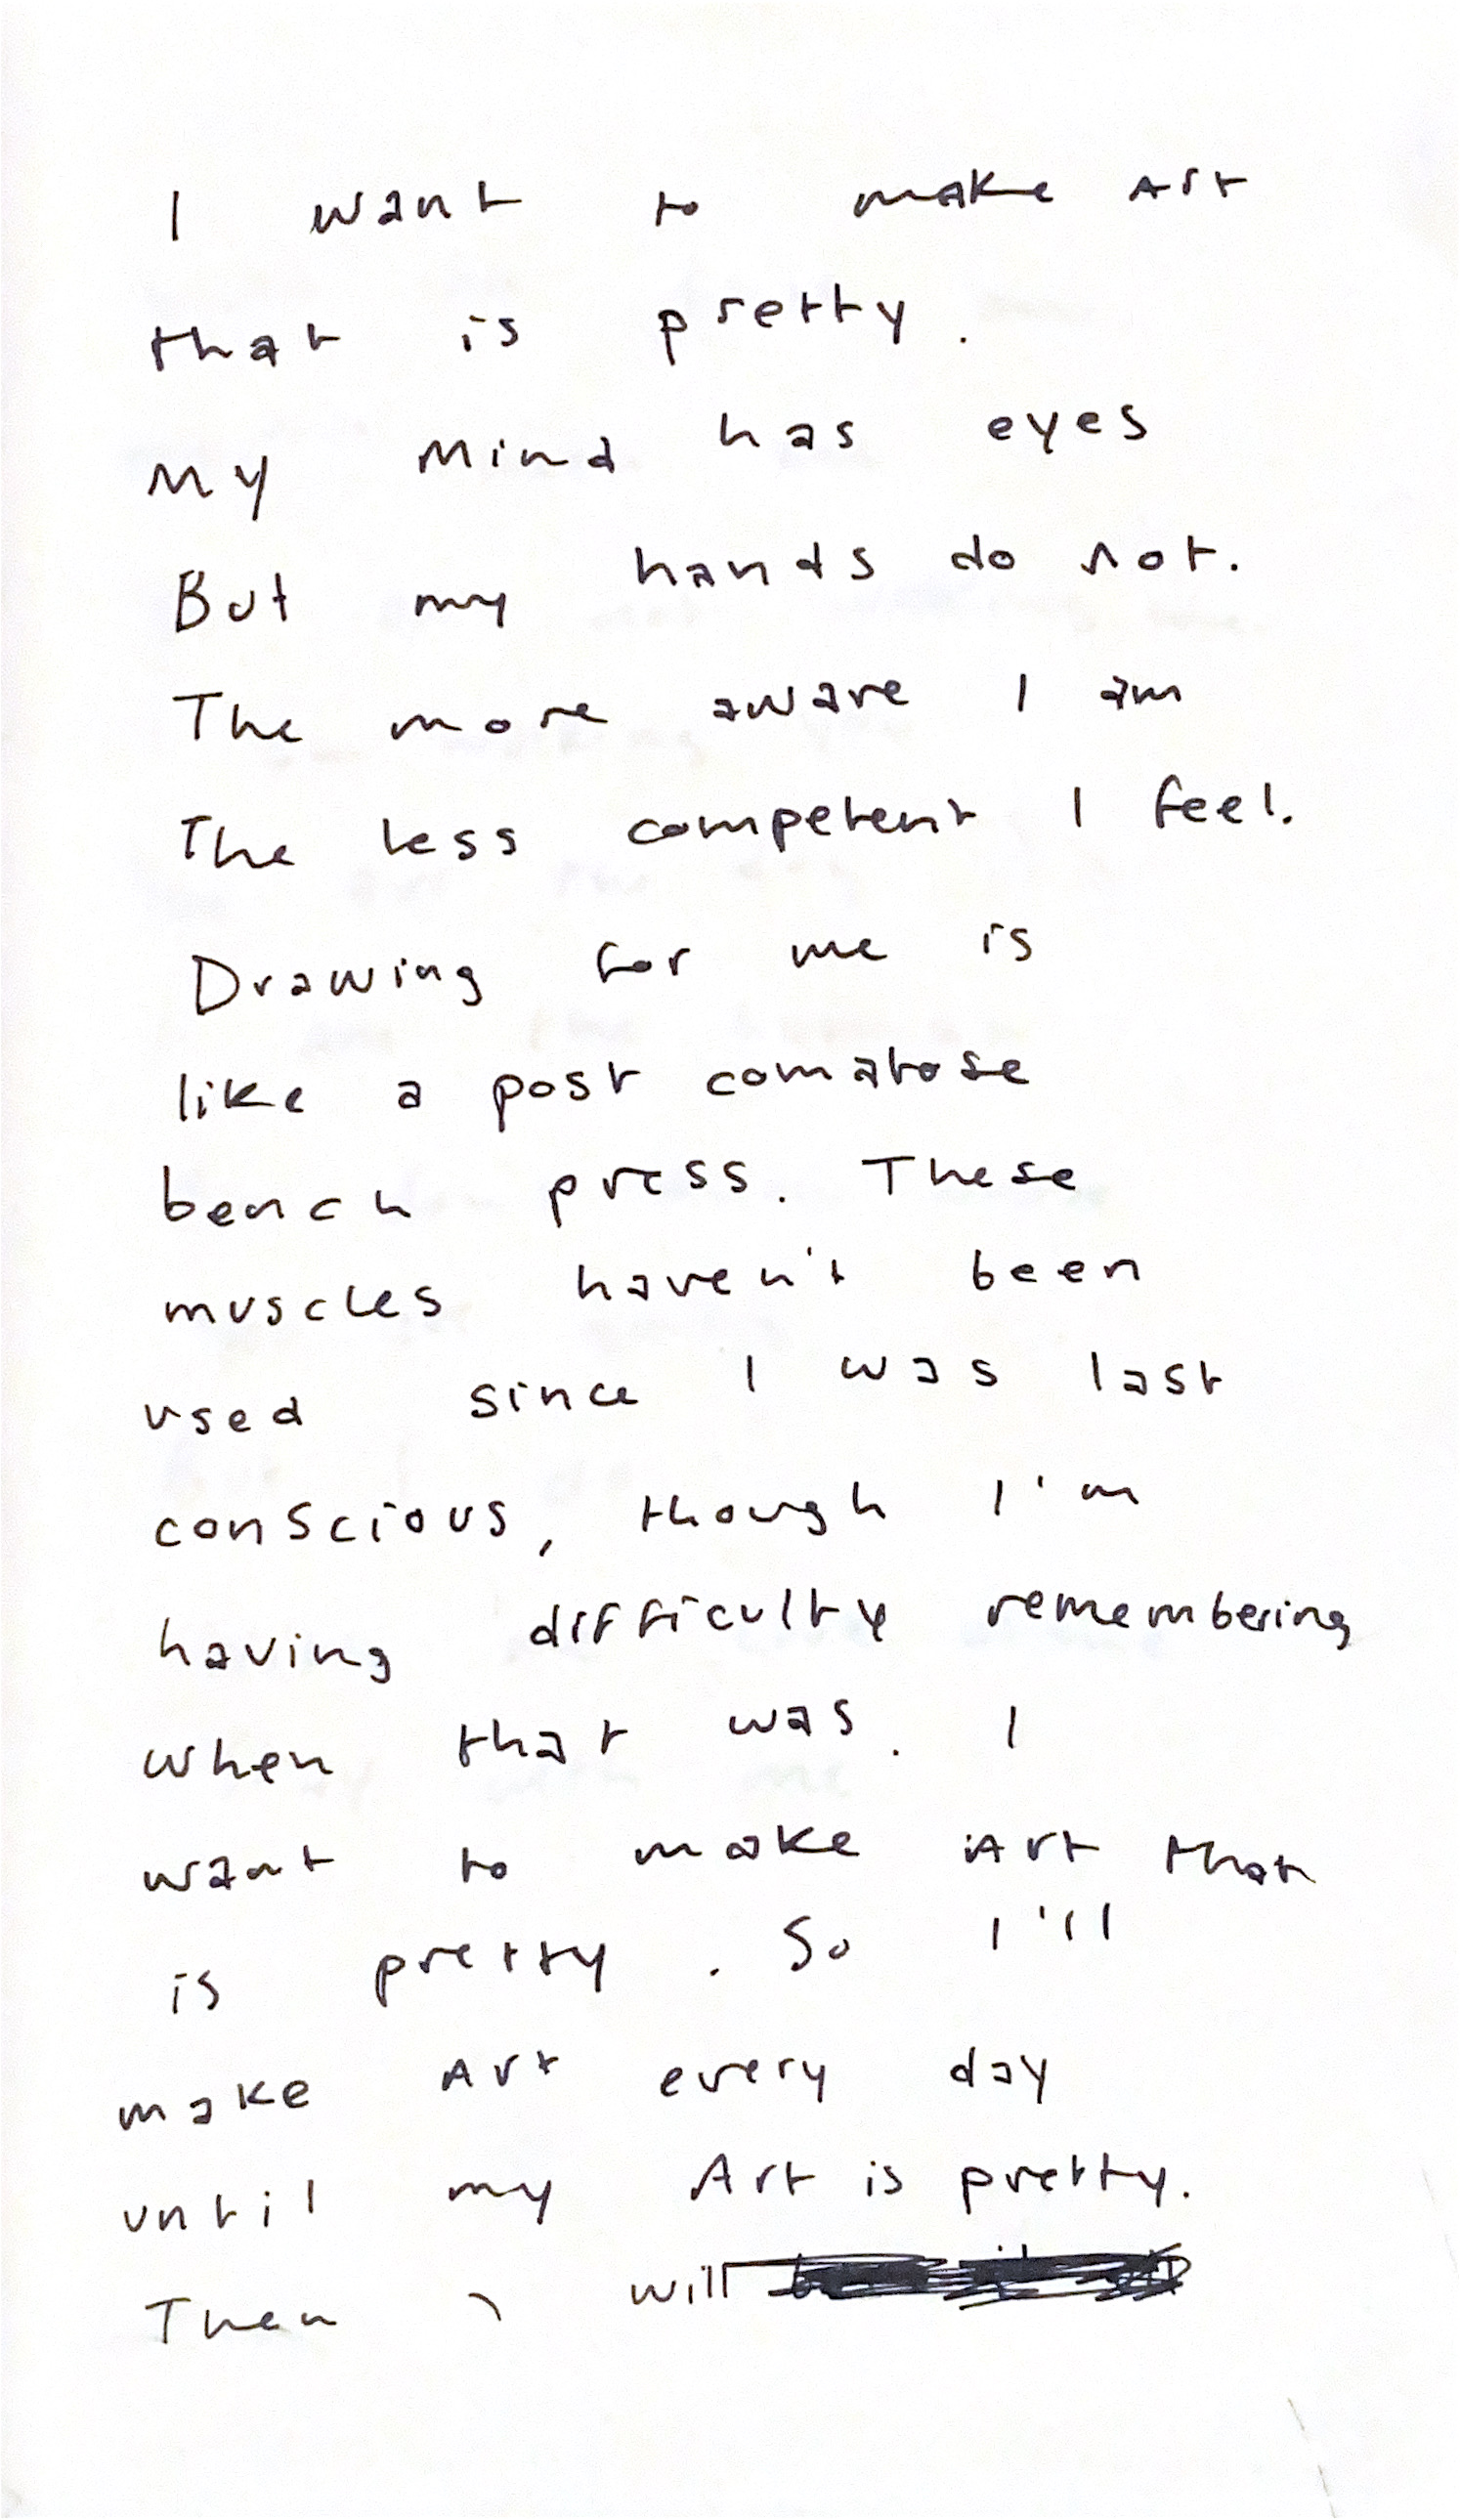 I want to make Art
that is pretty.
My Mind has eyes
But my hands do not.
The more aware I am
The less competent I feel.
Drawing for me is
like a post comatose
bench press. These
muscles haven't been
used since I was last
conscious, though I'm
having difficulty remembering
when that was. I
want to make Art that
is pretty. So I'll
make Art every day
until my Art is pretty.
Then I will